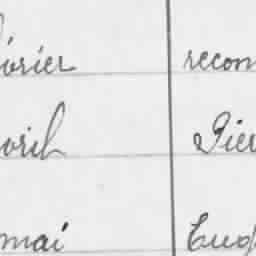 février recon
avril Pier
mai Eug